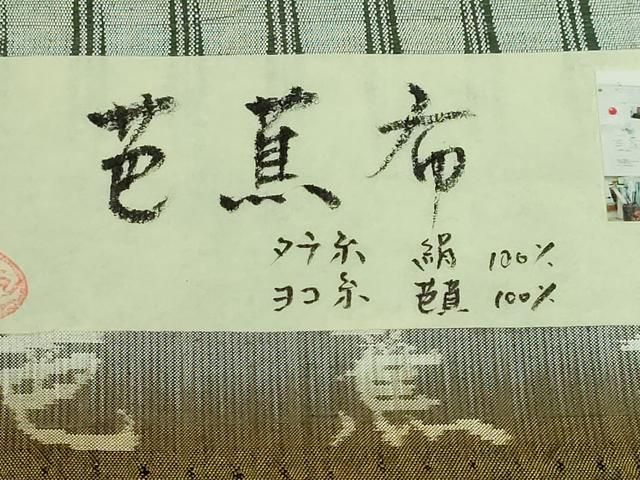 芭蕉布
タテ糸 絹 100%
ヨコ糸 芭蕉 100%
芭 蕉